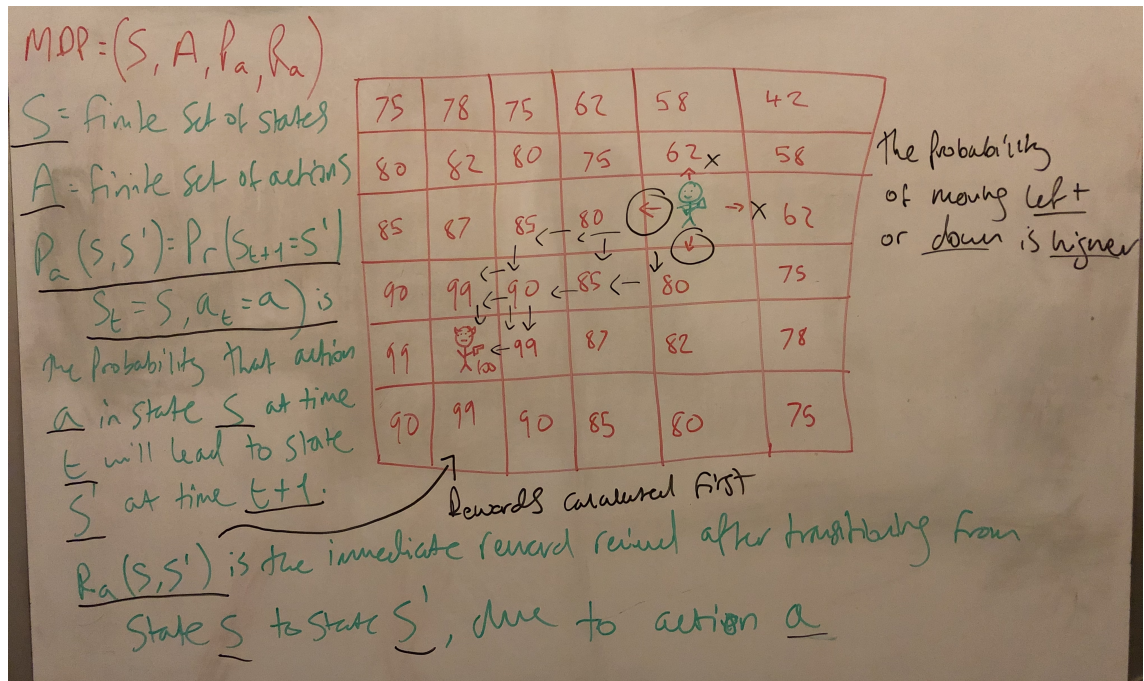 MDP = (S, A, Pa, Ra)
S = finite set of states
A = finite set of actions
Pa (S, S') = Pr(St+1 = S'|
St = S, at = a) is
the probability that action
a in state S at time
t will lead to state
S' at time t+1.
Ra (S,S') is the immediate reward reived after transitioning from
state S to state S', due to action a
75 78 75 62 58 42
80 82 80 75 62 x 58
85 87 85 80 ← → X 62
90 99 90 85 80 75
99 100 99 87 82 78
90 99 90 85 80 75
Rewards calculated first
the probability
of moving left +
or down is higher